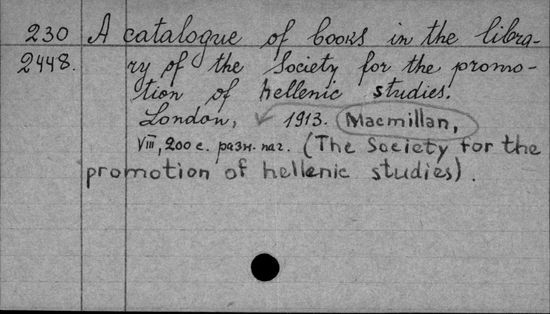 230 A catalogue of books in the libra-
2448. ry of the Society for the promo-
tion of hellenic studies.
London, 1913. (Macmillan,
VIII, 200 с. разн. паг. (The Society for the
promotion of hellenic studies).